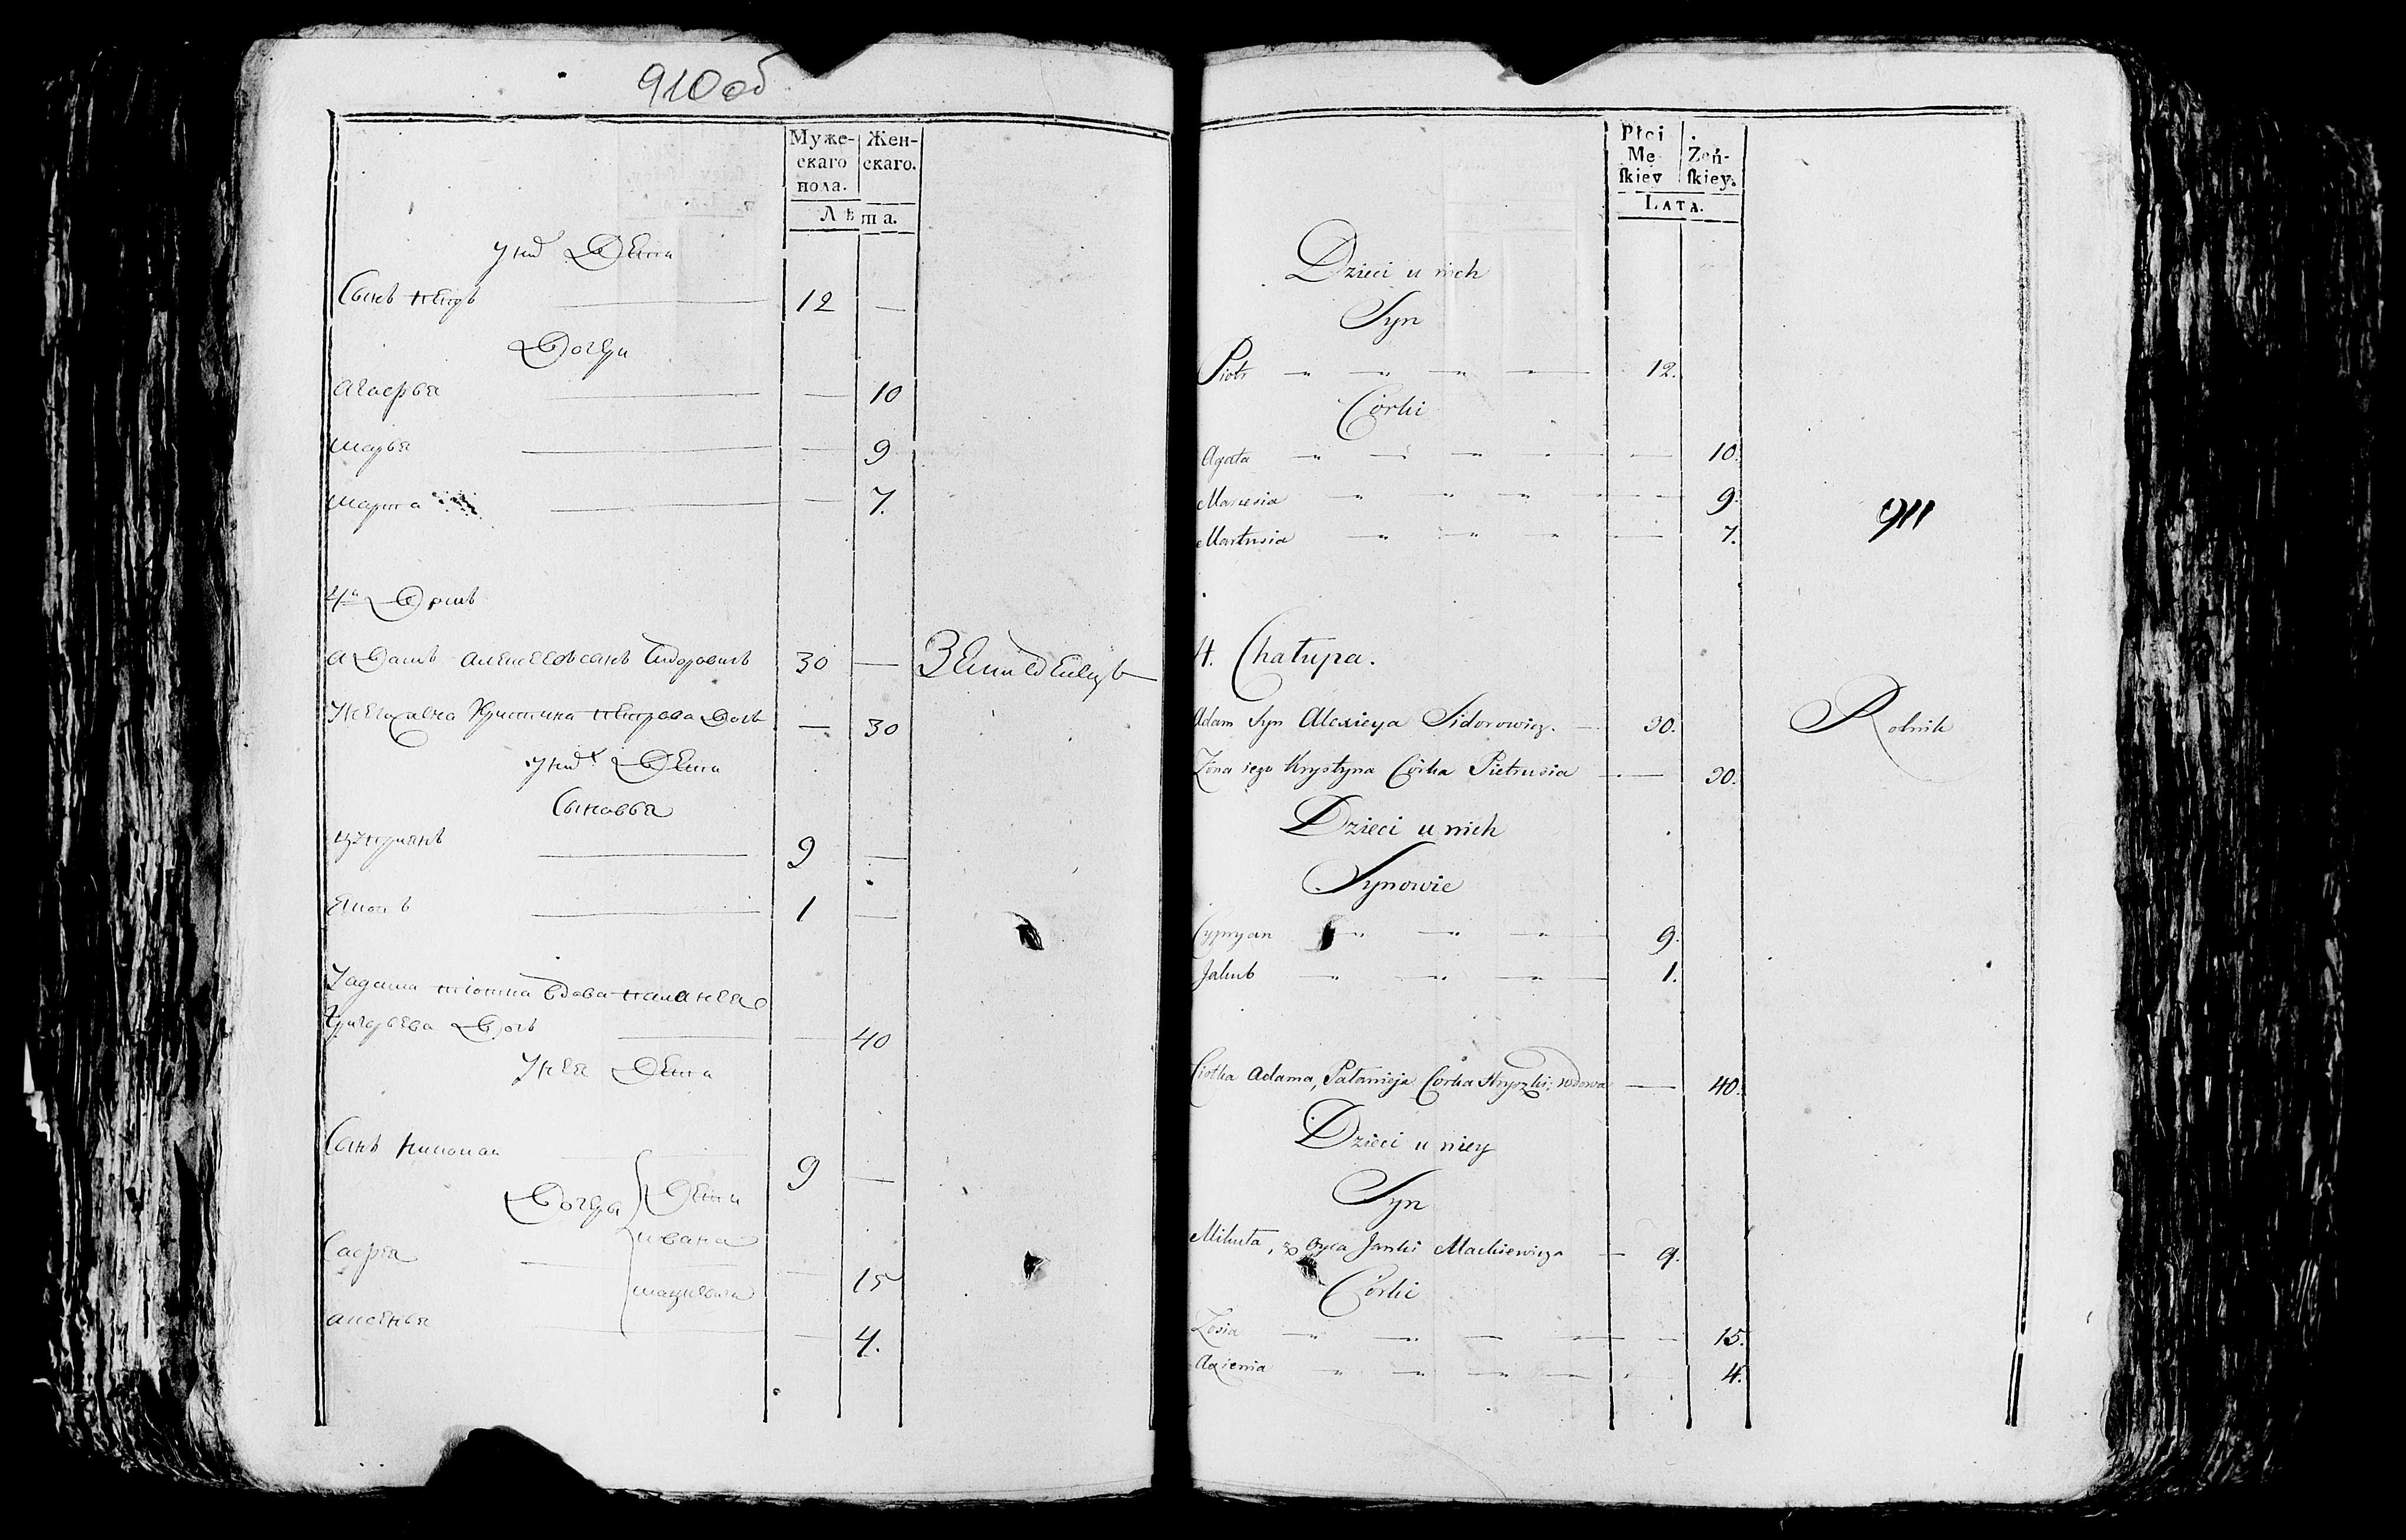 910об
Муже- Жен-
скаго скаго.
пола.
Лѣта.
у них Дети
Сынъ Петръ 12 —
Дочери
Агафья — 10
Марья — 9
Марта — 7.
4й Домъ
Адамъ Алексеевъ сынъ Сидоровичъ 30 — Земледелецъ
Жена его Кристина Петрова дочь — 30
у них Дети
Сыновья
Цыприянъ 9 —
Яковъ 1 —
У Адама тіотка вдова Паланея
Григорьева дочь — 40
У нея Дети
Сынъ Николай 9 —
Дочери Дети
Ивана
Софья — 15
Мацкевича
Аксенья — 4.
Płci
Mę- Żeń-
ſkiey ſkiey.
LATA.
Dzieci u nich
Syn
Piotr 12.
Córki
Agata 10.
Maryesia 9.
911
Martusia 7.
4. Chałupa.
Adam Syn Alexieya Sidorowicz. 30. Rolnik
Żona iego Krystyna Córka Pietrusia 30.
Dzieci u nich
Synowie
Cypryan 9.
Jakub 1.
Ciotka Adama, Pałanieja Corka Hryszki, wdowa 40.
Dzieci u niey
Syn
Mikuta, z Oyca Janki Mackiewicza 9.
Córki
Zosia 15.
Axienia 4.